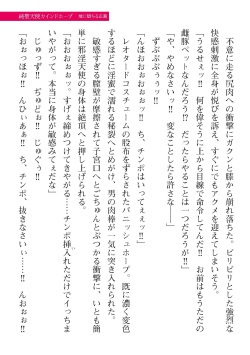 不意に走る尻肉への衝撃にガクンと膝から崩れ落ちた。ビリビリとした強烈な
快感刺激に全身が悦びを訴え、すぐにでもアクメを迎えてしまいそう。
「うるせぇッ!! 何を偉そうに上から目線で命令してんだ!! お前はもうただの
雌豚ペットなんだろう!? だったらやることは一つだろうが!!」
「や、やめなさいッ…!! 変なことしたら許さな――」
ずぷぷぷぅぅッ!!
「んほおおおぉぉッ!! ち、チンポはいってぇッ!!」
レオタードコスチュームの股布をずらされたバニッシュホープ。既に濃く変色
するほどに淫蜜で濡れる秘裂へとめがけ、男の肉棒が一気に突き入れられた。
敏感すぎる膣壁が摩擦されて子宮口へとごちゅんとぶつかる衝撃に、いとも簡
単に邪淫天使の身体は絶頂へと押し上げられる。
「おおぉぉッ。すげぇ締めつけてきやがる……チンポ挿入れただけでイっちま
いやがって、本当に身体が敏感みてぇだな」
じゅっずッ!! ぢゅどぉ!! じゅぐぅ!!
「おぉっほぉッ!! んひぃあぁ!! ち、チンポ、抜きなさいぃ……!! んおぉぉ!!